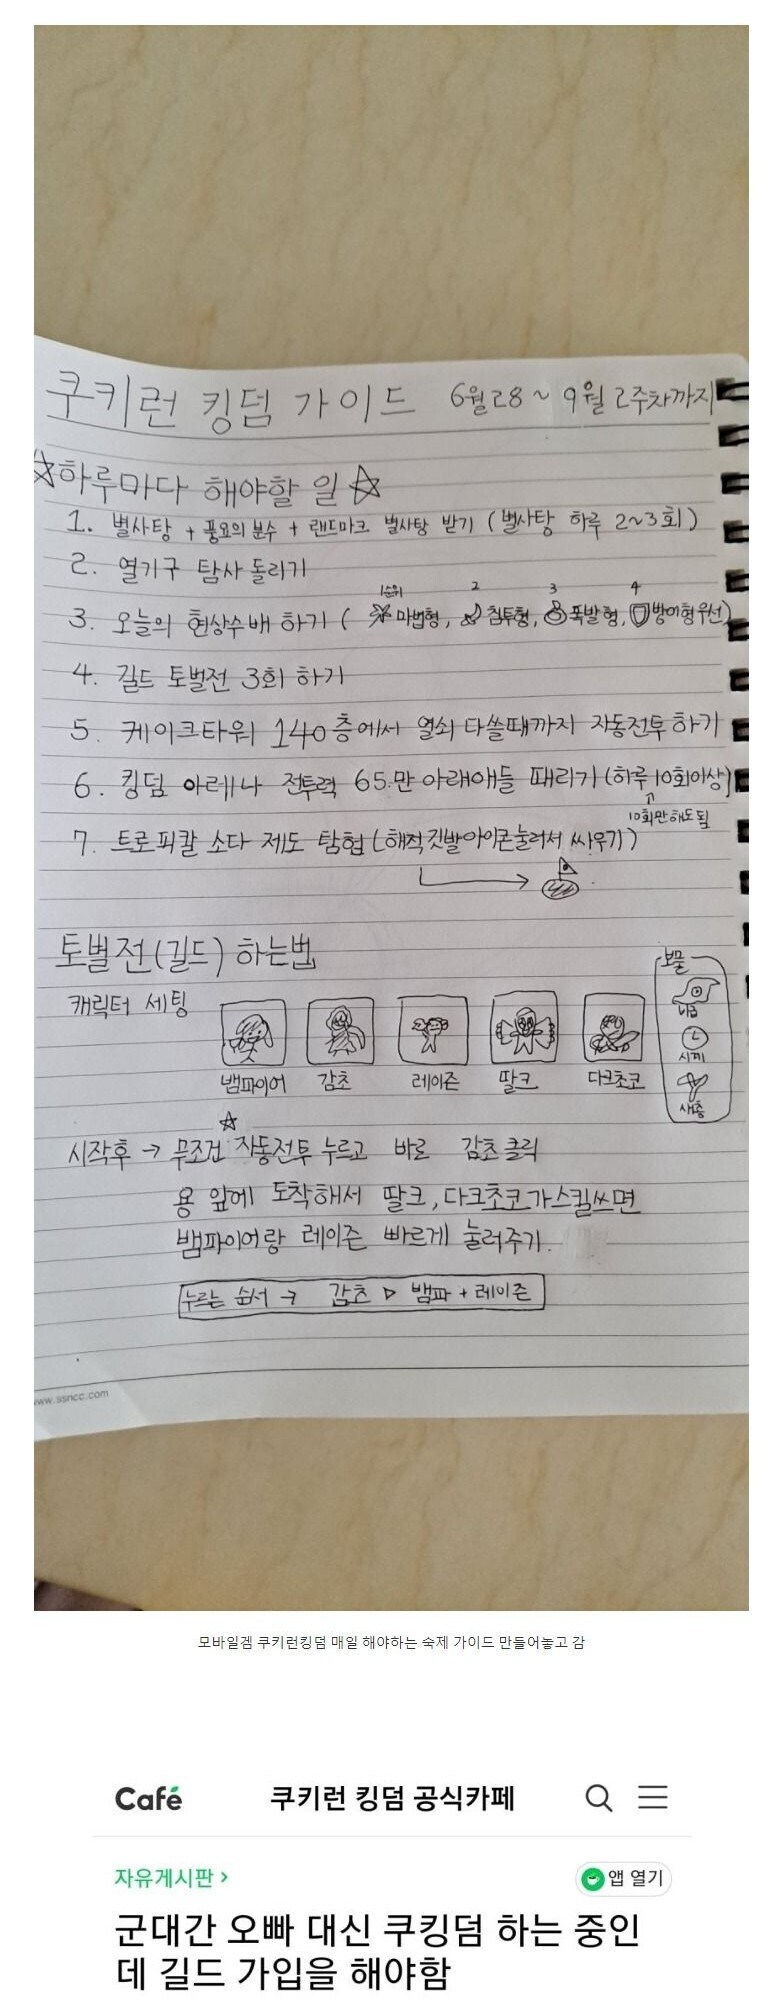 쿠키런 킹덤 가이드 6월28 ~ 9월 2주차까지
☆하루마다 해야할 일☆
1. 별사탕 + 풍요의 분수 + 랜드마크 별사탕 받기 (별사탕 하루 2~3회)
2. 열기구 탐사 돌리기
3. 오늘의 현상수배 하기 ( 1순위 마법형, 2 침투형, 3 폭발형, 4 방어형우선)
4. 길드 토벌전 3회 하기
5. 케이크타워 140층에서 열쇠 다쓸때까지 자동전투하기
6. 킹덤 아레나 전투력 65만 아래애들 때리기 (하루 10회이상)
10회만해도됨
7. 트로피칼 소다 제도 탐험 (해적깃발아이콘눌러서 싸우기)
토벌전(길드) 하는법
보물
캐릭터 세팅
시계
뱀파이어 감초 레이즌 딸크 다크초코
시작후 → 무조건 ☆자동전투 누르고 바로 감초클릭
용 앞에 도착해서 딸크, 다크초코가스킬쓰면
뱀파이어랑 레이즌 빠르게 눌러주기.
누르는 순서 → 감초 ▷ 뱀파 + 레이즌
www.ssncc.com
모바일겜 쿠키런킹덤 매일 해야하는 숙제 가이드 만들어놓고 감
Café 쿠키런 킹덤 공식카페
자유게시판 > 앱 열기
군대간 오빠 대신 쿠킹덤 하는 중인
데 길드 가입을 해야함